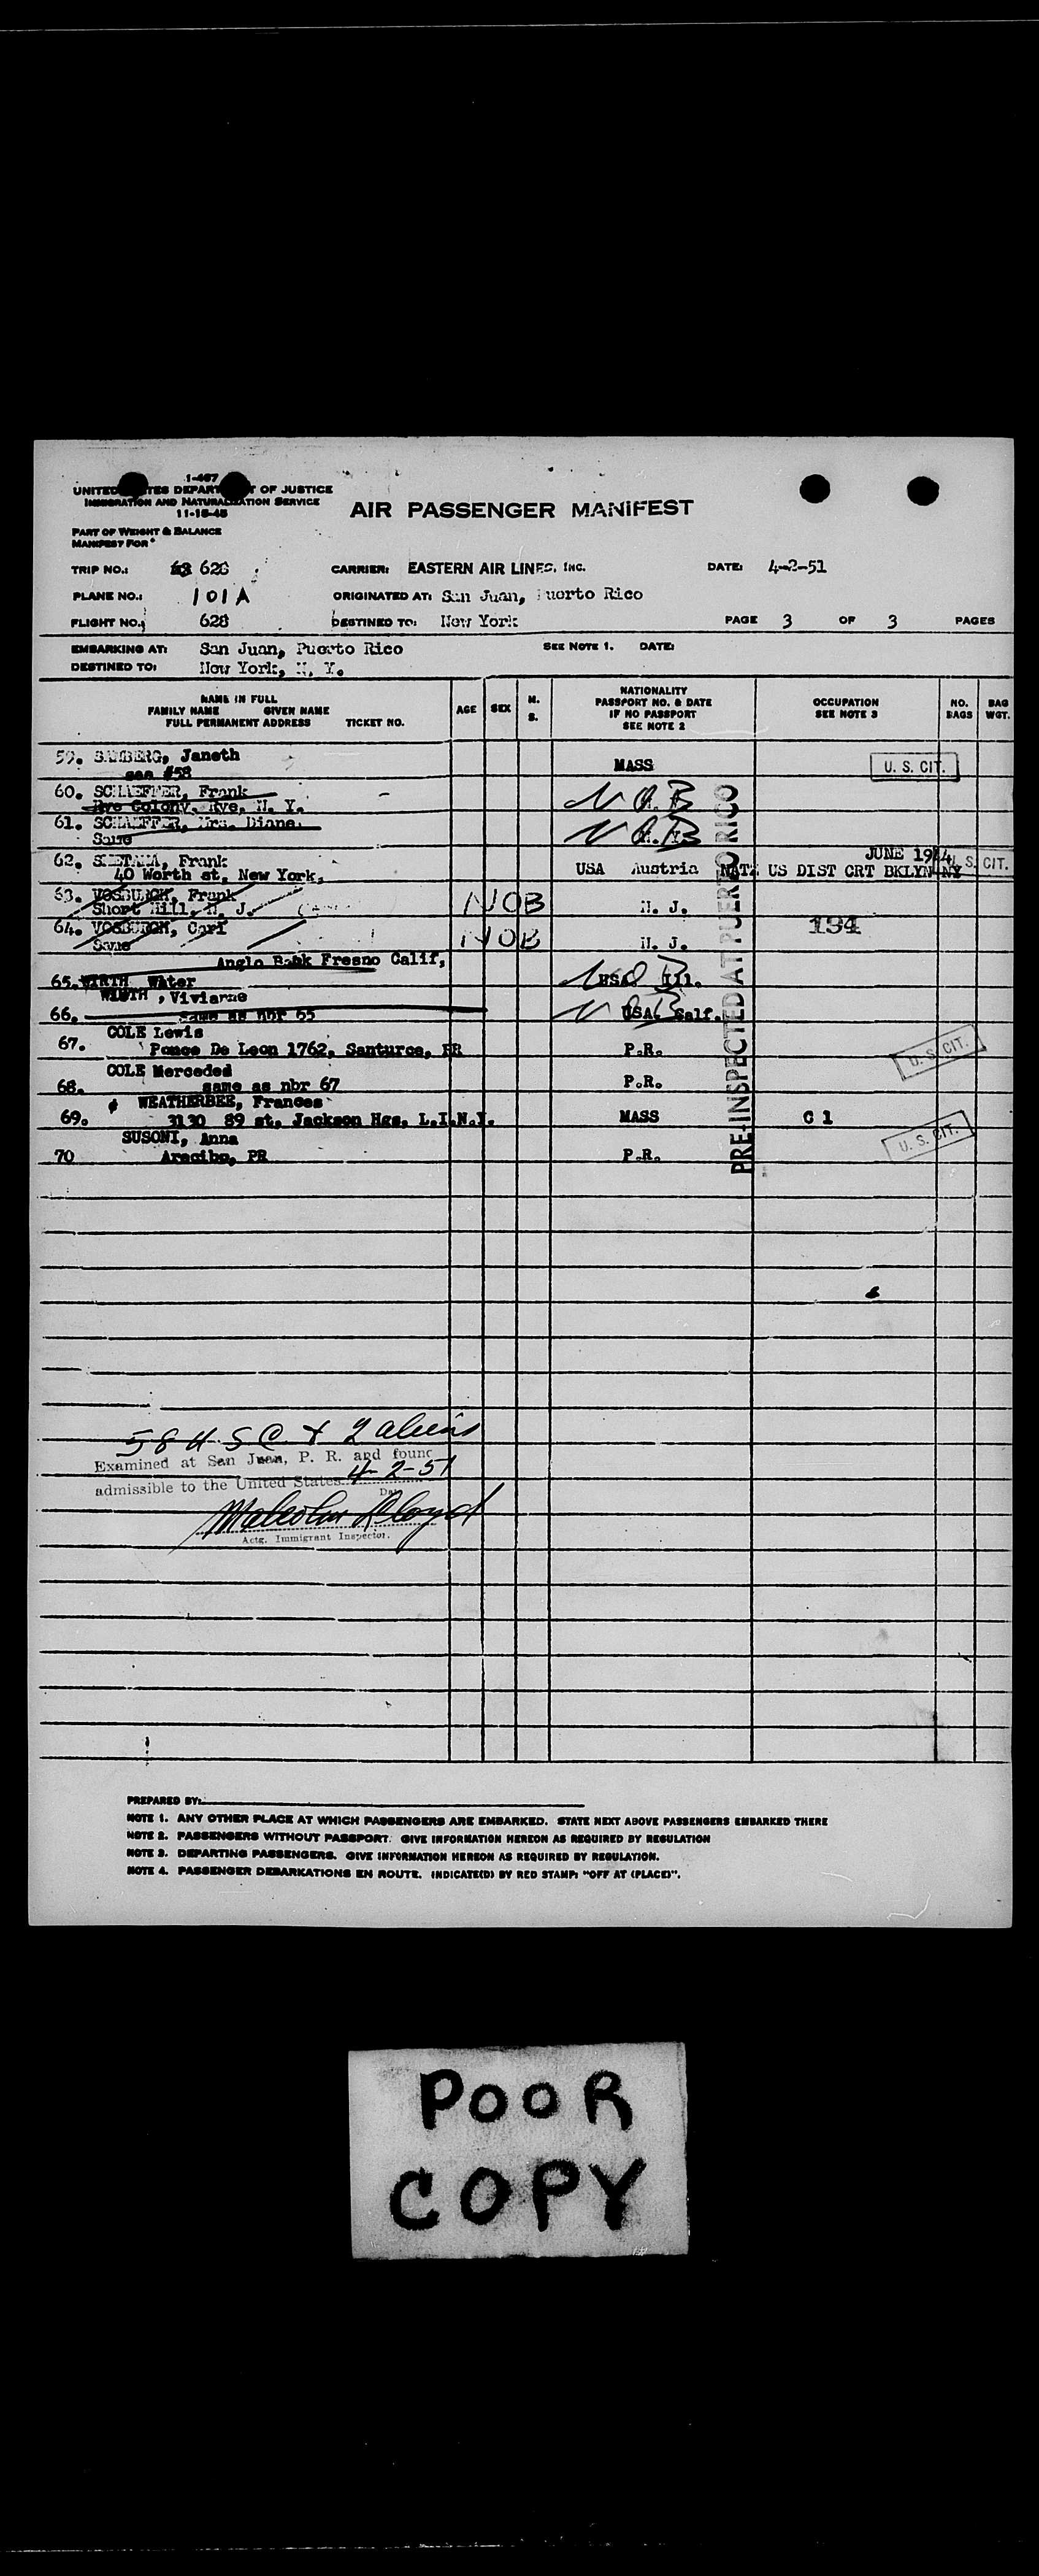 I-467
UNITED STATES DEPARTMENT OF JUSTICE
IMMIGRATION AND NATURALIZATION SERVICE
11-15-45
AIR PASSENGER MANIFEST
PART OF WEIGHT & BALANCE
MANIFEST FOR
TRIP NO.: 628 CARRIER: EASTERN AIR LINES, INC. DATE: 4-2-51
PLANE NO.: 101A ORIGINATED AT: San Juan, Puerto Rico
FLIGHT NO.; 628 DESTINED TO: New York PAGE 3 OF 3 PAGES
EMBARKING AT: San Juan, Puerto Rico SEE NOTE 1. DATE:
DESTINED TO: New York, N. Y.
NAME IN FULL
FAMILY NAME GIVEN NAME
FULL PERMANENT ADDRESS TICKET NO.
AGE SEX M. S.
NATIONALITY
PASSPORT NO. & DATE
IF NO PASSPORT
SEE NOTE 2
OCCUPATION
SEE NOTE 3
NO. BAGS
BAG WGT.
59. Janeth MASS U. S. CIT.
see #58
60. SCHAEFFER, Frank N O B
Rye Colony, Rye, N. Y.
61. SCHAEFFER, Mrs. Diana N O B
Same
62. Frank USA Austria NATZ US DIST CRT BKLYN NY JUNE 1944 U. S. CIT.
40 Worth st, New York,
63. VOSBURGH, Frank NOB N. J.
Short Hill, N. J.
64. VOSBURGH, Carl NOB N. J. 194
Same
Anglo Bank Fresno Calif,
65. WIRTH Water N O B USA Ill.
WIRTH , Viviarne
66. same as nbr 65 N O B USA Calf.
COLE Lewis
67. Ponce De Leon 1762, Santurce, PR P.R. U. S. CIT.
COLE Merceded
68. same as nbr 67 P.R.
WEATHERBEE, Frances
69. 3130 89 st. Jackson Hgs, L.I.N.Y. MASS C 1
SUSONI, Anna U. S. CIT.
70 Aracibo, PR P.R.
PRE-INSPECTED AT PUERTO RICO
58 U S C & 2 aliens
Examined at San Juan, P. R. and found
admissible to the United States 4-2-51
Date
Malcolm Lloyd
Actg. Immigrant Inspector.
PREPARED BY:
NOTE 1. ANY OTHER PLACE AT WHICH PASSENGERS ARE EMBARKED. STATE NEXT ABOVE PASSENGERS EMBARKED THERE
NOTE 2. PASSENGERS WITHOUT PASSPORT. GIVE INFORMATION HEREON AS REQUIRED BY REGULATION
NOTE 3. DEPARTING PASSENGERS. GIVE INFORMATION HEREON AS REQUIRED BY REGULATION.
NOTE 4. PASSENGER DEBARKATIONS EN ROUTE. INDICATE(D) BY RED STAMP: "OFF AT (PLACE)".
POOR
COPY